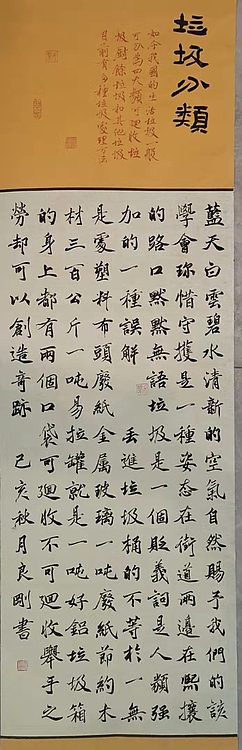 垃圾分類
如今我國的生活垃圾一般
可分為四大類可迴收垃
圾廚餘垃圾和其他垃圾
目前有多種垃圾處理方法
藍天白雲碧水清新的空氣自然賜予我們的該
學會珍惜守護是一種姿态在街道兩邊在熙攘
的路口默默無語垃圾是一個貶義詞是人類强
加的一種誤解 丢進垃圾桶的不等於一無
是處塑料布頭廢紙金属玻璃一吨廢紙節約木
材三百公斤一吨易拉罐就是一吨好鋁垃圾箱
的身上都有兩個口袋可迴收不可迴收舉手之
勞却可以創造奇跡 己亥秋月良剛書